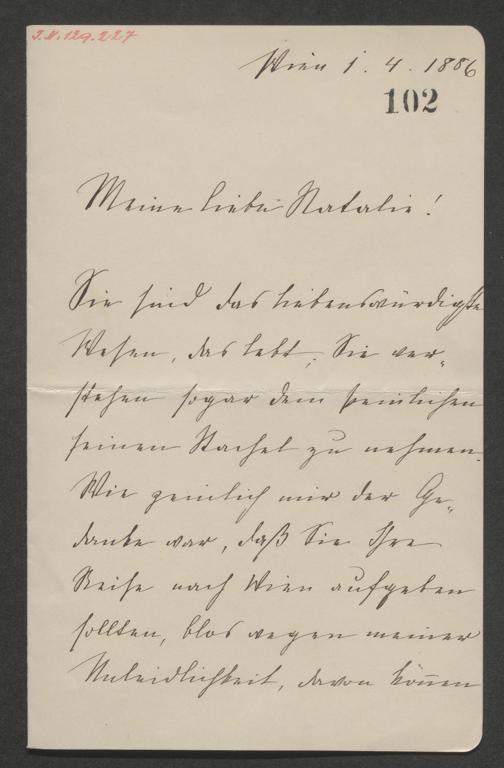 I.N. 129.227
Wien 1. 4. 1886
102
Meine liebe Natalie!
Sie sind das liebenswürdigste
Wesen, das lebt; Sie ver-
stehen sogar dem peinlichen
seinen Stachel zu nehmen.
Wie peinlich mir der Ge-
danke war, daß Sie Ihre
Reise nach Wien aufgeben
sollten, blos wegen meiner
Unleidlichkeit, davon können